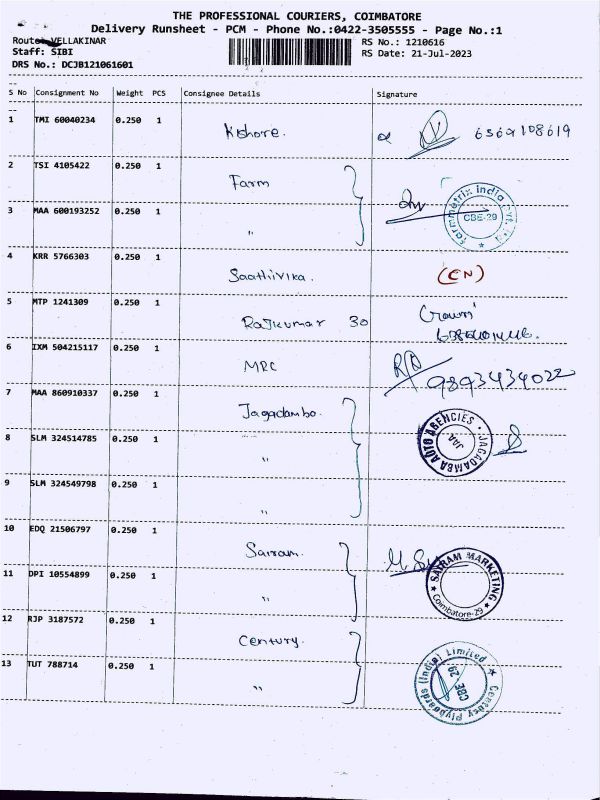 THE PROFESSIONAL COURIERS, COIMBATORE
Delivery Runsheet - PCM - Phone No.:0422-3505555 - Page No.:1
Route: VELLAKINAR
RS No.: 1210616
Staff: SIBI
RS Date: 21-Jul-2023
DRS No.: DCJB121061601
S No Consignment No Weight PCS Consignee Details Signature
1 TMI 60040234 0.250 1 Kishore.
2 TSI 4105422 0.250 1 Farm
3 MAA 600193252 0.250 1 "
Farmmetrix India Pvt. Ltd
CBE-29
4 KRR 5766303 0.250 1 Saathivika. (CN)
5 MTP 1241309 0.250 1 Rajkumar 30
6 IXM 504215117 0.250 1 MRC 9893434022
7 MAA 860910337 0.250 1 Jagadamba.
8 SLM 324514785 0.250 1 "
JAGADAMBA AUTO AGENCIES
JAA
9 SLM 324549798 0.250 1 "
10 EDQ 21506797 0.250 1 Sairam.
11 DPI 10554899 0.250 1 "
SAIRAM MARKETING
Coimbatore-29
12 RJP 3187572 0.250 1 Century.
13 TUT 788714 0.250 1 "
Century Plyboards (India) Limited
CBE
29